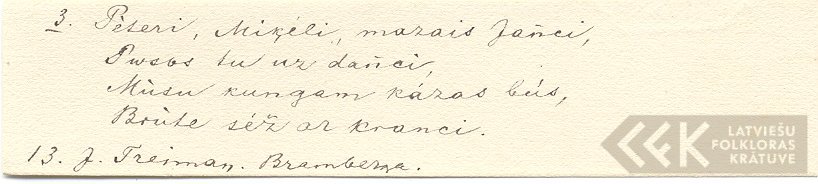 3. Pèteri, Miķéli, mazais Jañci,
Pwsos tu uz dañci,
Mùsu kungam kázas bús,
Brùte séž ar kranci.
13. J. Treiman. Bramberģa.
LATVIEŠU
FOLKLORAS
KRĀTUVE